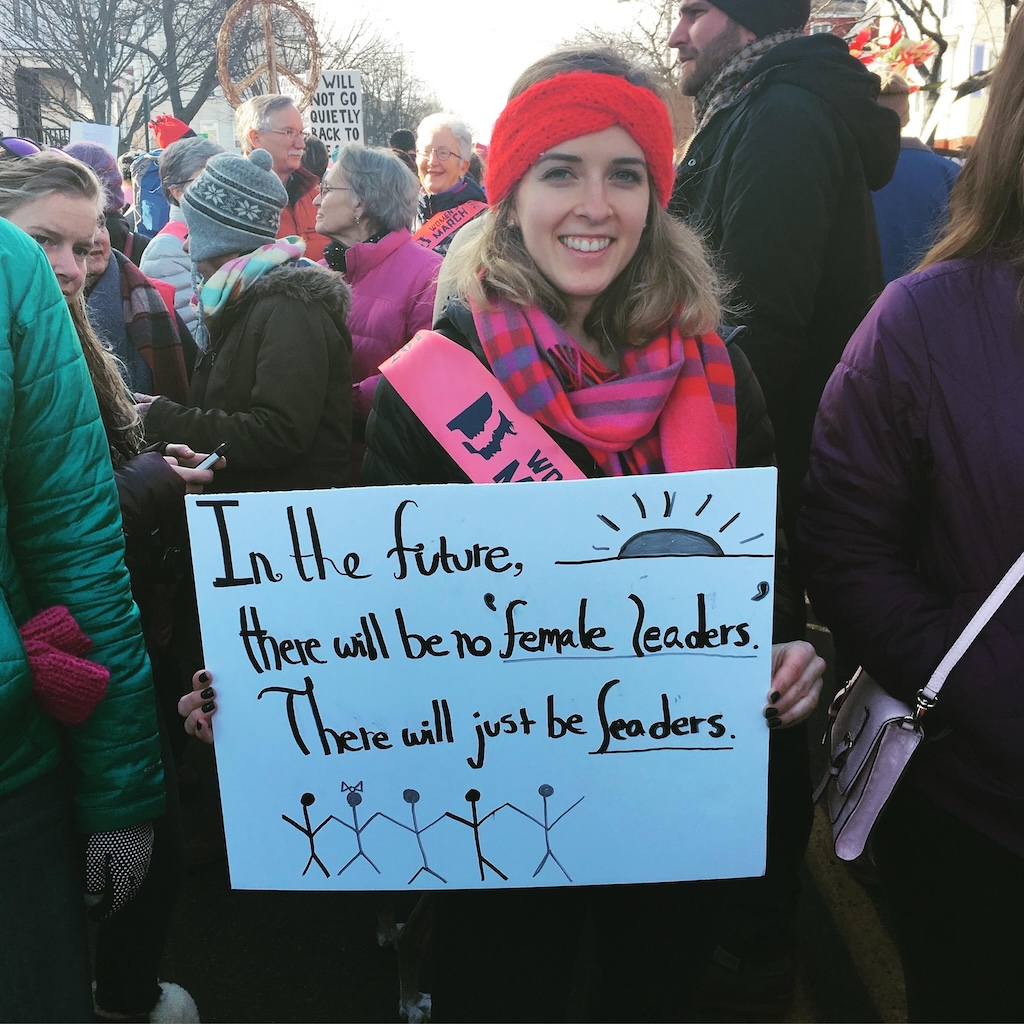 WILL
NOT GO
QUIETLY
BACK TO
WOMEN'S
MARCH
WO
In the future,
there will be no 'female leaders.'
There will just be leaders.